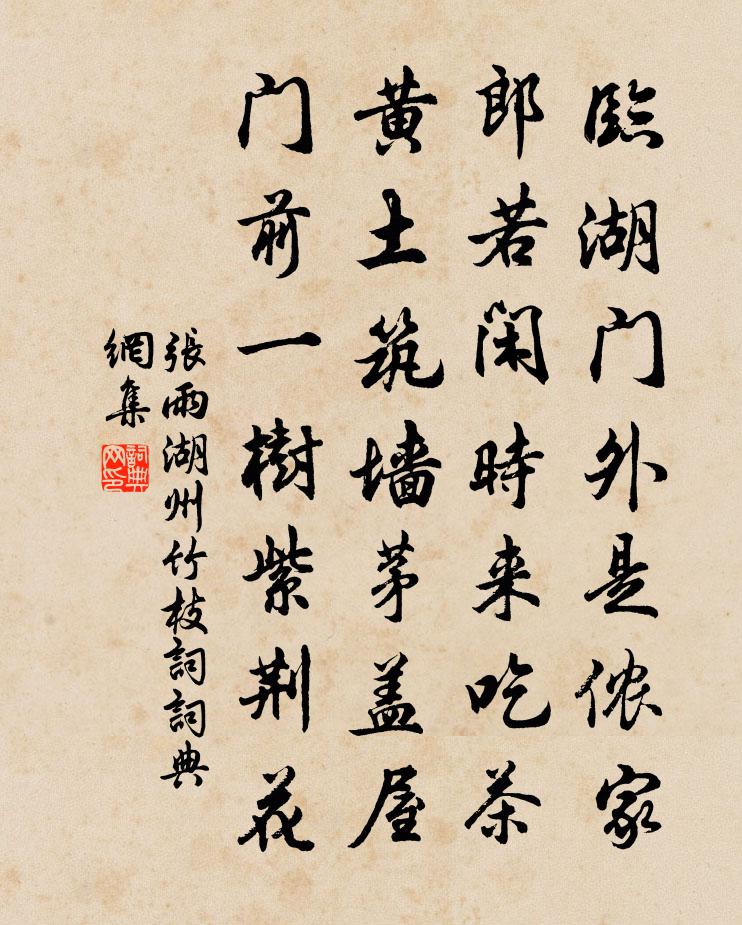 臨湖门外是侬家
郎若闲時来吃茶
黄土筑墙茅盖屋
门前一樹紫荆花
張雨湖州竹枝詞詞典
網集
詞典
网印